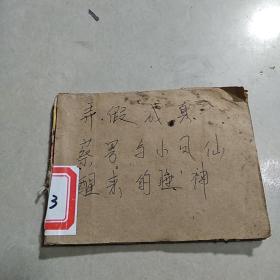 弄假成真
蔡锷与小凤仙
醒来的睡神
3